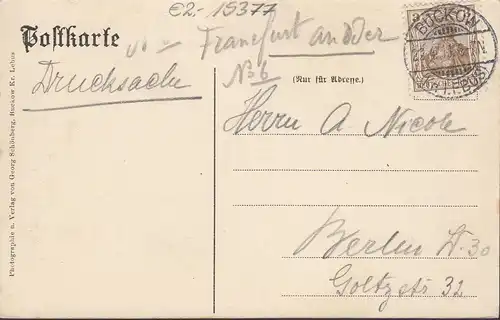 €2.- 15377
Postkarte
Frankfurt an der
No 6
Drucksache
(Nur für Adresse.)
BUCKOW
Herrn A Nicole
Berlin W. 30
Goltzstr 32
Photographie u. Verlag von Georg Schönberg, Buckow Kr. Lebus